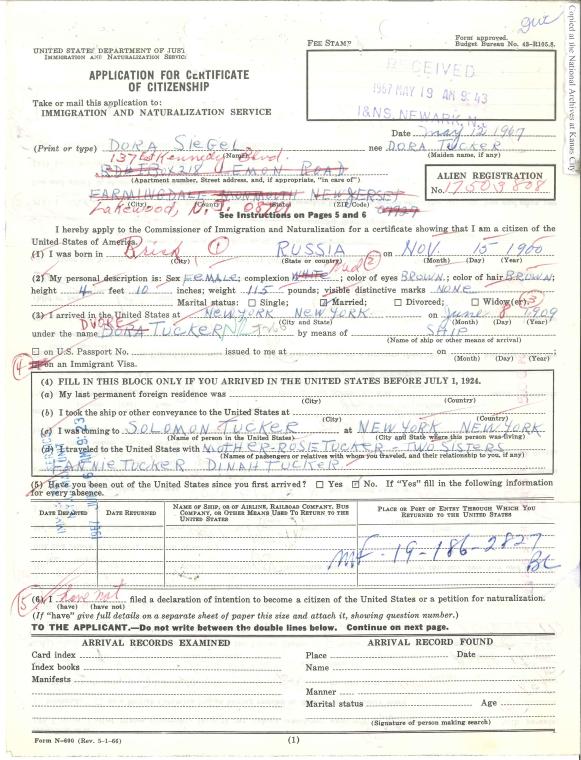 Copied at the National Archives at Kansas City
UNITED STATES DEPARTMENT OF JUST
IMMIGRATION AND NATURALIZATION SERVIC
FEE STAMP
Form approved.
Budget Bureau No. 43-R105.8.
APPLICATION FOR CERTIFICATE
OF CITIZENSHIP
RECEIVED
1967 MAY 19 AM 9:43
I&NS, NEWARK, N.J.
Take or mail this application to:
IMMIGRATION AND NATURALIZATION SERVICE
Date May 12, 1967
(Print or type) DORA SIEGEL nee DORA TUCKER
(Name) (Maiden name, if any)
Kennedy Blvd.
LEMON ROAD
(Apartment number, Street address, and, if appropriate, "in care of")
ALIEN REGISTRATION
No. 17503808
FARMINGDALE MONMOUTH NEW JERSEY
(City) (County) (State) (ZIP Code)
Lakewood, N.J.
See Instructions on Pages 5 and 6
I hereby apply to the Commissioner of Immigration and Naturalization for a certificate showing that I am a citizen of the
United States of America.
(1) I was born in RUSSIA on NOV. 15 1900
(City) (State or country) (Month) (Day) (Year)
(2) My personal description is: Sex FEMALE; complexion WHITE; color of eyes BROWN; color of hair BROWN;
height 4 feet 10 inches; weight 115 pounds; visible distinctive marks NONE
Marital status: Single; Married; Divorced; Widow(er).
(3) I arrived in the United States at NEW YORK NEW YORK on June 8 1909
(City and State) (Month) (Day) (Year)
under the name DVOKE DORA TUCKER by means of SHIP
(Name of ship or other means of arrival)
on U.S. Passport No. issued to me at on
(Month) (Day) (Year)
on an Immigrant Visa.
(4) FILL IN THIS BLOCK ONLY IF YOU ARRIVED IN THE UNITED STATES BEFORE JULY 1, 1924.
(a) My last permanent foreign residence was
(City) (Country)
(b) I took the ship or other conveyance to the United States at
(City) (Country)
(c) I was coming to SOLOMON TUCKER at NEW YORK NEW YORK
(Name of person in the United States) (City and State where this person was living)
(d) I traveled to the United States with MOTHER-ROSIE TUCKER - TWO SISTERS
(Names of passengers or relatives with whom you traveled, and their relationship to you, if any)
FANNIE TUCKER DINAH TUCKER
(5) Have you been out of the United States since you first arrived? Yes No. If "Yes" fill in the following information
for every absence.
DATE DEPARTED
DATE RETURNED
NAME OF SHIP, OR OF AIRLINE, RAILROAD COMPANY, BUS
COMPANY, OR OTHER MEANS USED TO RETURN TO THE
UNITED STATES
PLACE OR PORT OF ENTRY THROUGH WHICH YOU
RETURNED TO THE UNITED STATES
MF-19-186-2827
(6) I have not filed a declaration of intention to become a citizen of the United States or a petition for naturalization.
(have) (have not)
(If "have" give full details on a separate sheet of paper this size and attach it, showing question number.)
TO THE APPLICANT.—Do not write between the double lines below. Continue on next page.
ARRIVAL RECORDS EXAMINED
Card index
Index books
Manifests
ARRIVAL RECORD FOUND
Place Date
Name
Manner
Marital status Age
(Signature of person making search)
Form N-600 (Rev. 5-1-66)
(1)